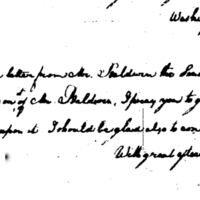 Washi
letter from Mr. Baldwin the Sen
on of Mr. Baldwin, I pray you to g
upon it I should be glad also to con
With great estee